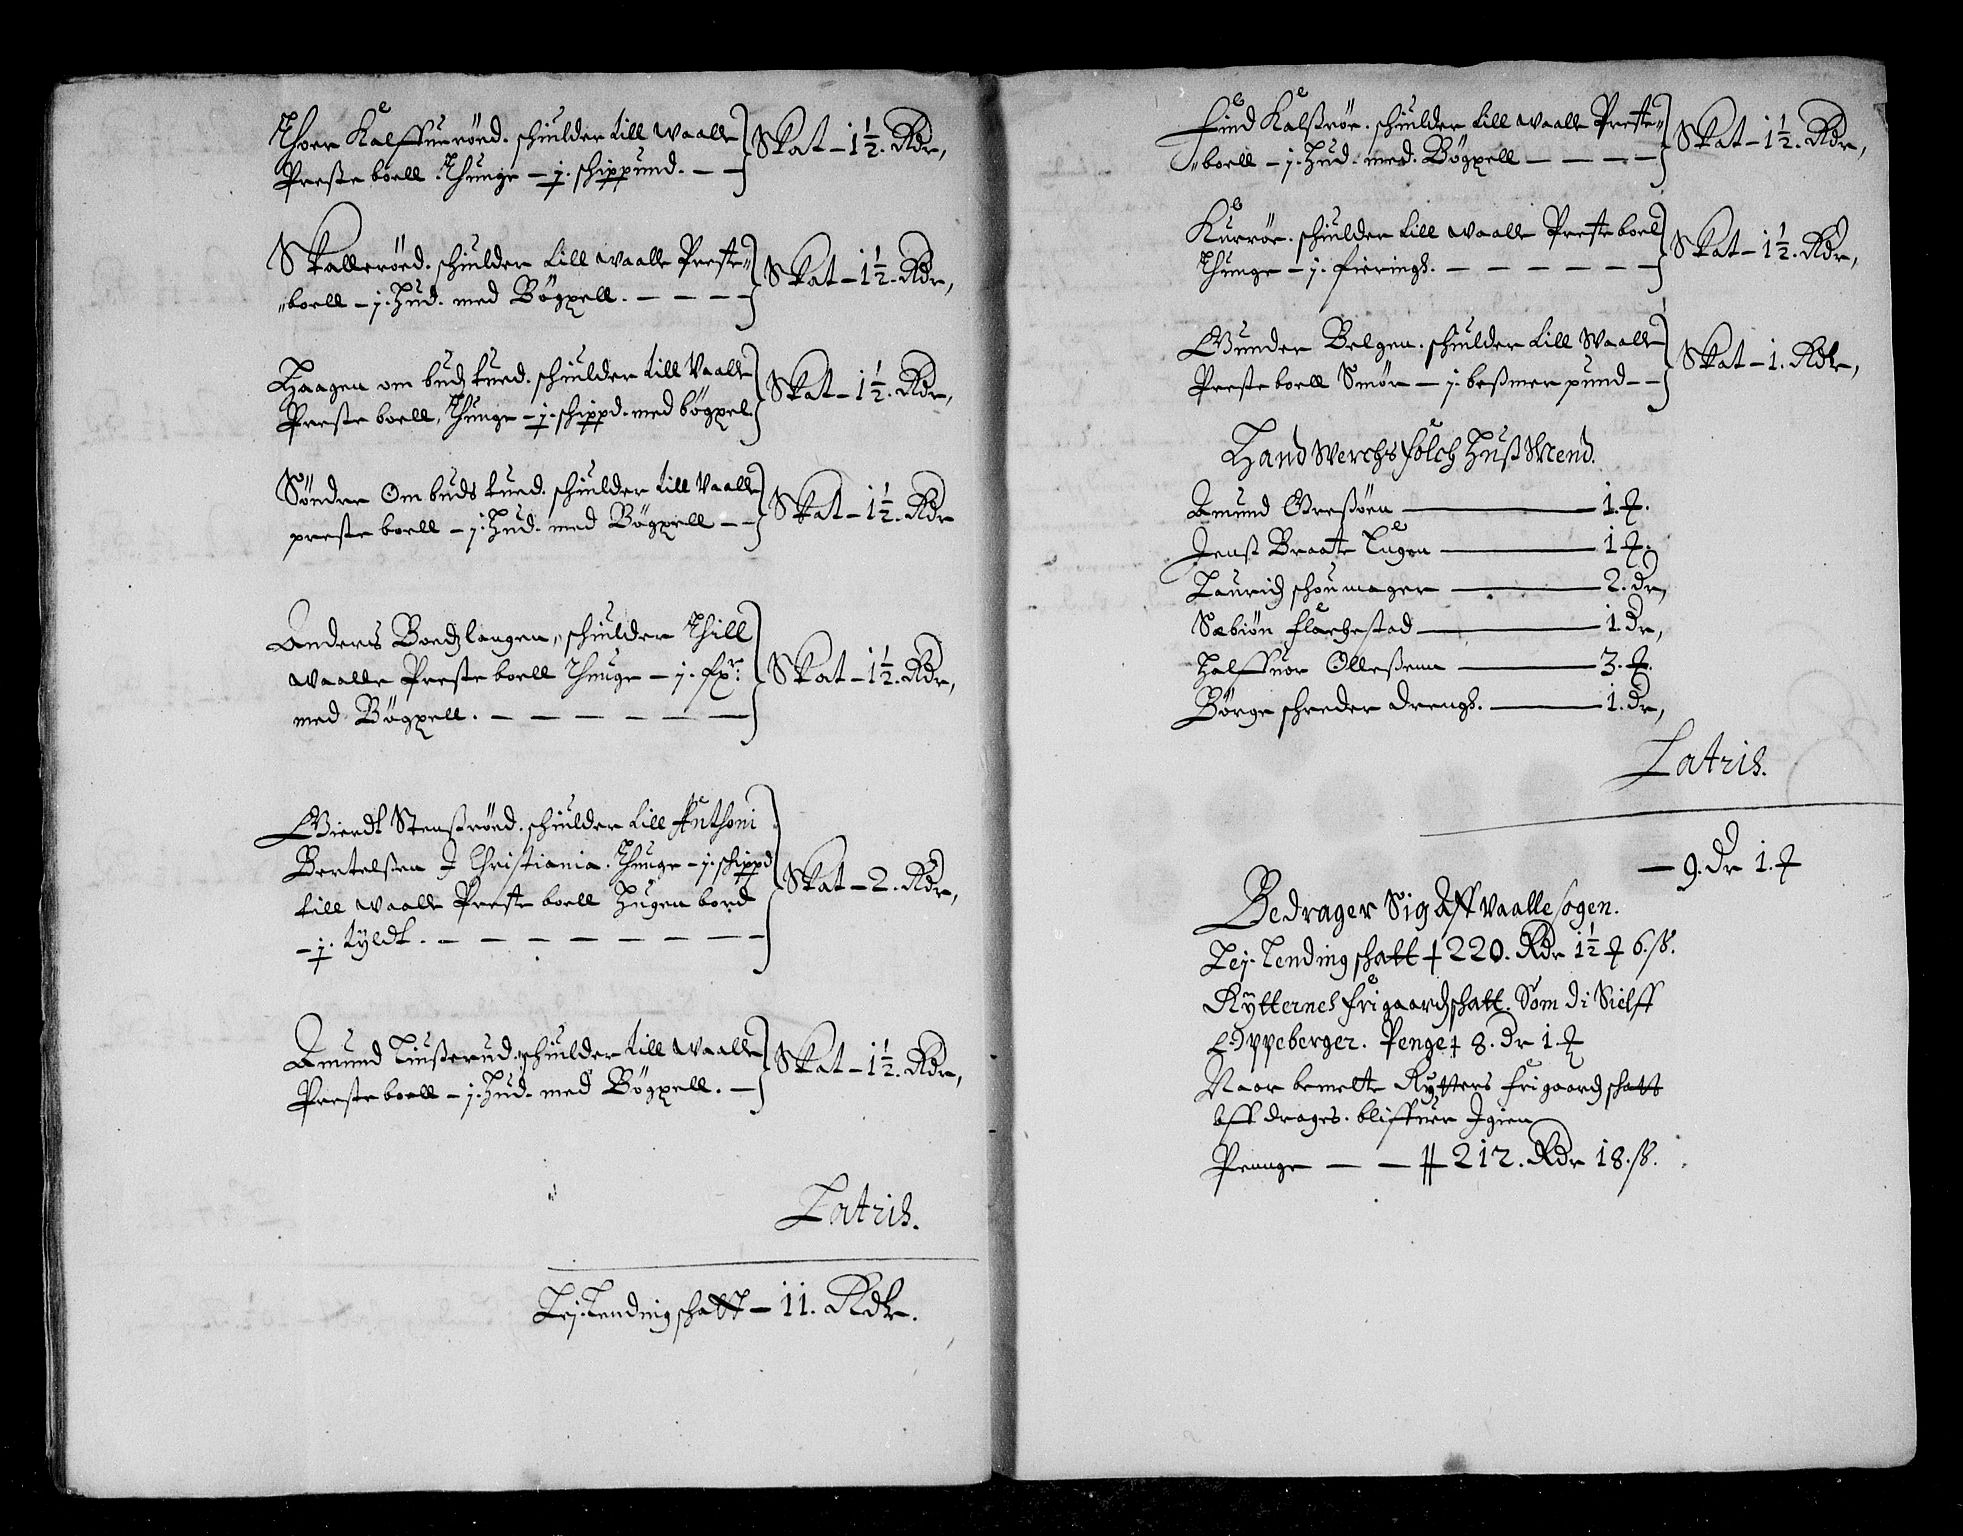 Thoer Kalffuerröed. schiulder till Waalle
Preste boell. Thunge - j. schippund. - - Skat - 1½. Rdr,
Skallerröed. schiulder till Waalle Preste„
„boell - j. Hud. med Bögxell. - - - - Skat - 1½. Rdr,
Haagen om budz kued. schiulder till Vaalle
Preste boell, Thunge - j. schippd. med bögxel. Skat - 1½. Rdr,
Söndre Om buds kued. schiulder till Vaalle
preste boell - j. Hud. med Bögxell - - Skat - 1½. Rdr
Anders Boedzlangen, schiulder Thill
Waalle Preste boell Thunge - j. fxr:
med Bögxell. - - - - - - Skat - 1½. Rdr,
Gierdt Stenssröed. schiulder till Anthoni
Bertelssen J Christiania. Thunge - j. schippd
till Waalle Preste boell Hugen bord
- j. tyldt. - - - - - - - - Skat - 2. Rdr,
Amund Liusserud. schiulder till Waalle
Preste boell - j. Hud. med Bögxell. - Skat - 1½. Rdr,
Latris.
Lej. Lending schatt - 11. Rdlr.
Find Kalssröe. schiulder till Waalle Preste„
„boell - j. Hud. med. Bögxell - - - - Skat - 1½. Rdr,
Kuerröe. schiulder till Waalle Preste boel
Thunge - j. fierings. - - - - - - Skat - 1½. Rdr,
Gunder Belgen. schiulder till Waalle
Preste boell Smör - j. bessmer pund - - Skat - 1. Rdlr,
Hand Werchs folch Huss Mend.
Amund Gressöen - 1. ꝗ.
Jenss Braate Lugen - 1 ꝗ.
Lauridz schoumager - 2. dr,
Sæbiön flachestad - 1. dr,
Halffuor Ollessenn - 3. ꝗ.
Börge schreder drengs. - 1. dr,
Latris.
- 9. dr 1. ꝗ
Bedrager Sig Aff Vaalle sogen.
Lej. Lending schatt ɟ 220. Rdr 1½ ꝗ 6. ss.
Rytternes frigaardschatt. Som di Sielff
Oppeberger. Penge ɟ 8. dr 1 ꝗ
Naar bemelte Rytters frigaardz schatt
aff drages. bliffuer Igien
Pennge - - ɟɟ 212. Rdr 18. ss.